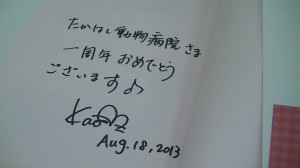 たかはし動物病院さま
一周年おめでとう
ございます♪
Aug.18,2013